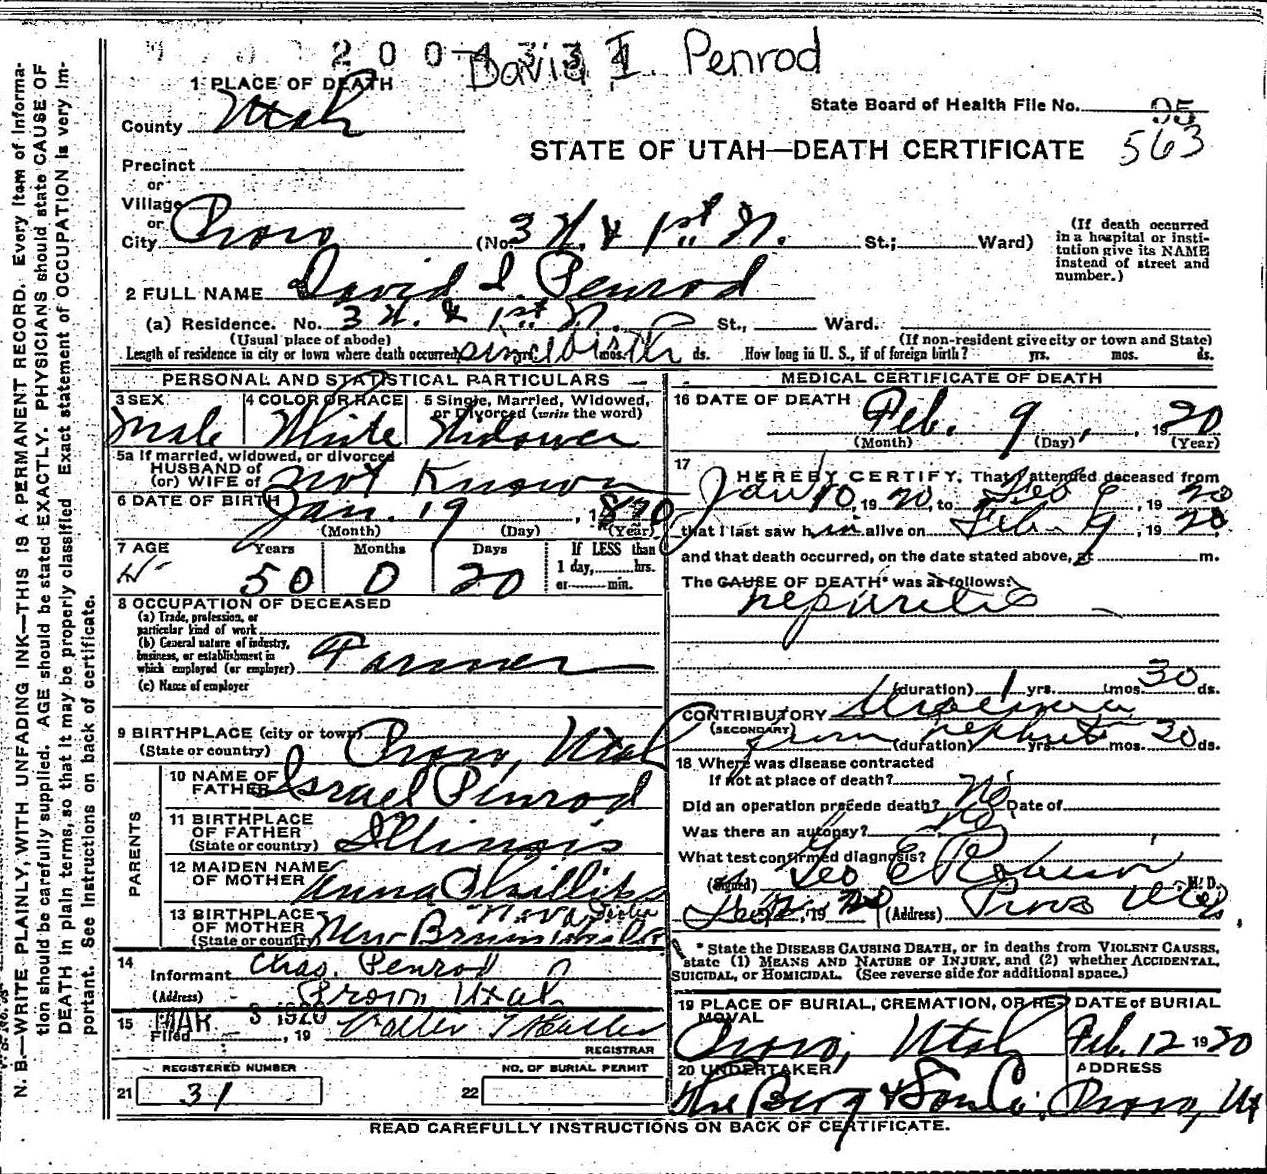 2004334
David I. Penrod
1 PLACE OF DEATH
County Utah
State Board of Health File No. 95
563
STATE OF UTAH—DEATH CERTIFICATE
Precinct
or
Village
or
City Provo (No. 3 W. & 1st N. St.; Ward)
(If death occurred in a hospital or institution give its NAME instead of street and number.)
2 FULL NAME David I. Penrod
(a) Residence. No. 3 W. & 1st N. St., Ward.
(Usual place of abode) (If non-resident give city or town and State)
Length of residence in city or town where death occurred since birth yrs. mos. ds. How long in U. S., if of foreign birth? yrs. mos. ds.
PERSONAL AND STATISTICAL PARTICULARS
3 SEX Male
4 COLOR OR RACE White
5 Single, Married, Widowed, or Divorced (write the word) Widower
5a If married, widowed, or divorced
HUSBAND of
(or) WIFE of Not Known
6 DATE OF BIRTH Jan. 19, 1870
(Month) (Day) (Year)
7 AGE Years 50 Months 0 Days 20
If LESS than 1 day, hrs. or min.
8 OCCUPATION OF DECEASED
(a) Trade, profession, or particular kind of work
(b) General nature of industry, business, or establishment in which employed (or employer) Farmer
(c) Name of employer
9 BIRTHPLACE (city or town) Provo, Utah
(State or country)
PARENTS
10 NAME OF FATHER Israel Penrod
11 BIRTHPLACE OF FATHER (State or country) Illinois
12 MAIDEN NAME OF MOTHER Anna Phillips
13 BIRTHPLACE OF MOTHER (State or country) New Brunswick Nova Scotia
14 Informant Chas. Penrod
(Address) Provo, Utah
15 Filed MAR 3 1920, 19
REGISTRAR
REGISTERED NUMBER
21 31
NO. OF BURIAL PERMIT
22
MEDICAL CERTIFICATE OF DEATH
16 DATE OF DEATH Feb. 9, 1920
(Month) (Day) (Year)
17 I HEREBY CERTIFY, That I attended deceased from
Jan 10, 1920, to Feb 9, 1920
that I last saw him alive on Feb 9, 1920,
and that death occurred, on the date stated above, at m.
The CAUSE OF DEATH* was as follows:
nephritis
(duration) 1 yrs. mos. 30 ds.
CONTRIBUTORY Uraemia
(SECONDARY) from nephritis
(duration) yrs. mos. 30 ds.
18 Where was disease contracted
if not at place of death?
Did an operation precede death? No Date of
Was there an autopsy? No
What test confirmed diagnosis?
(Signed) Geo E Robison, M. D.
, 1920 (Address) Provo Utah
* State the DISEASE CAUSING DEATH, or in deaths from VIOLENT CAUSES, state (1) MEANS AND NATURE OF INJURY, and (2) whether ACCIDENTAL, SUICIDAL, or HOMICIDAL. (See reverse side for additional space.)
19 PLACE OF BURIAL, CREMATION, OR REMOVAL Provo, Utah
DATE of BURIAL Feb. 12 1920
20 UNDERTAKER The Berg & Son Co.
ADDRESS Provo, Ut
READ CAREFULLY INSTRUCTIONS ON BACK OF CERTIFICATE.
N. B.—WRITE PLAINLY, WITH UNFADING INK—THIS IS A PERMANENT RECORD. Every item of information should be carefully supplied. AGE should be stated EXACTLY. PHYSICIANS should state CAUSE OF DEATH in plain terms, so that it may be properly classified. Exact statement of OCCUPATION is very important. See instructions on back of certificate.